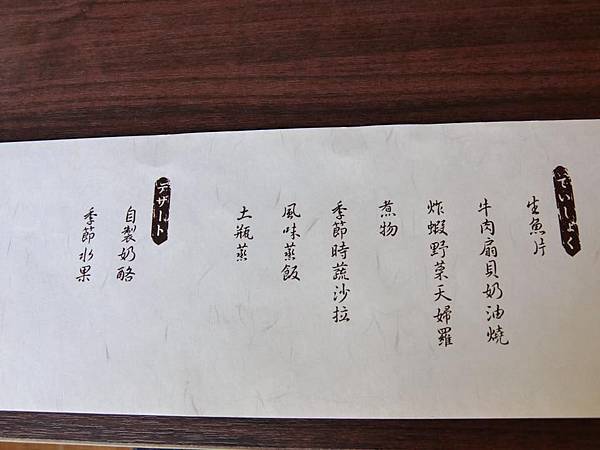 ていしょく
生魚片
牛肉扇貝奶油燒
炸蝦野菜天婦羅
煮物
季節時蔬沙拉
風味蒸飯
土瓶蒸
デザート
自製奶酪
季節水果